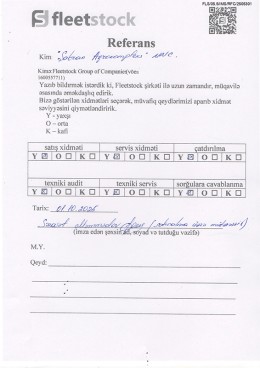 fleetstock
Referans
Kim: "Sabran Aqrokompleksi" MMC.
Kimə: Fleetstock Group of Companies
Yazıb bildirmək istərdik ki, Fleetstock şirkəti ilə uzun zamandır, müqavilə
əsasında əməkdaşlıq edirik.
Bizə göstərilən xidmətləri seçərək, müvafiq qeydlərimizi aparıb xidmət
səviyyəsini qiymətləndiririk.
Y – yaxşı
O – orta
K – kafi
satış xidməti servis xidməti çatdırılma
Y O K Y O K Y O K
texniki audit texniki servis sorğulara cavablanma
Y O K Y O K Y O K
Tarix: 01.10.2025
(imza edən şəxsin ad, soyad və tutduğu vəzifə)
M.Y.
Qeyd: